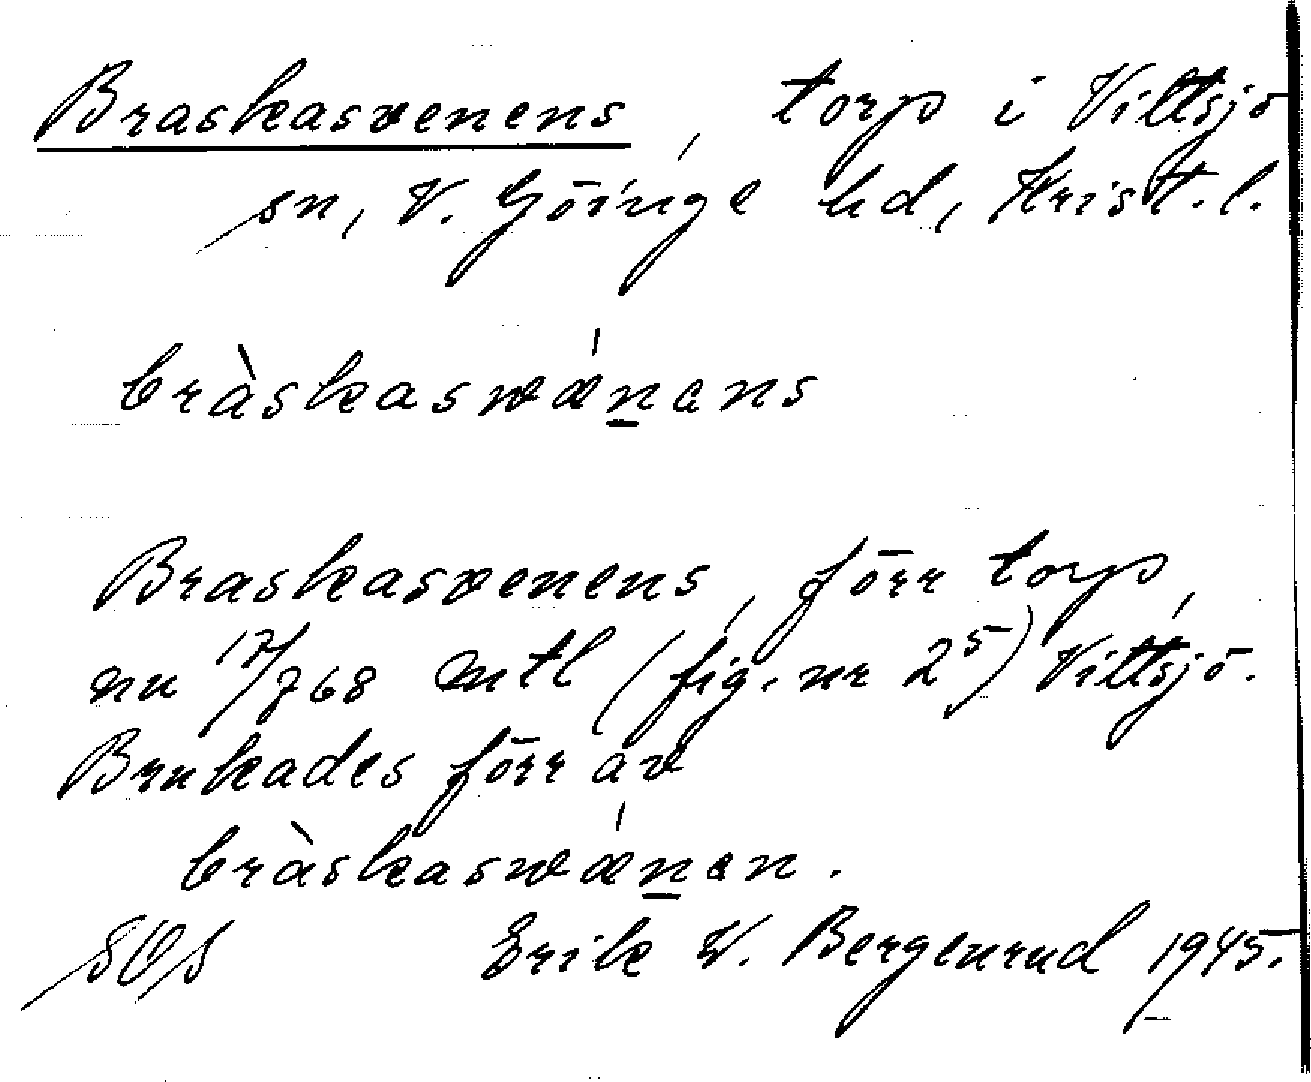 Braskasvenens, torp i Vittsjö
sn, V. Göinge hd, Krist. l.
bràskaswǽnans
Braskasvenens, förr torp,
nu 17/768 mtl (fig. nr 2⁵) Vittsjö.
Brukades förr av
bràskaswǽnan.
SOS Erik W. Bergenrud 1945.